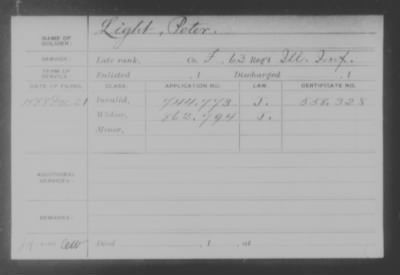 NAME OF SOLDIER: Light, Peter.
SERVICE: Late rank, Co. F, 63 Reg't Ill. Inf.
TERM OF SERVICE: Enlisted , 1 Discharged , 1
DATE OF FILING. CLASS. APPLICATION NO. LAW. CERTIFICATE NO.
Invalid, 744.773 J. 558.328
Widow, 862.794 J.
Minor,
ADDITIONAL SERVICES:
REMARKS:
Died , 1 , at